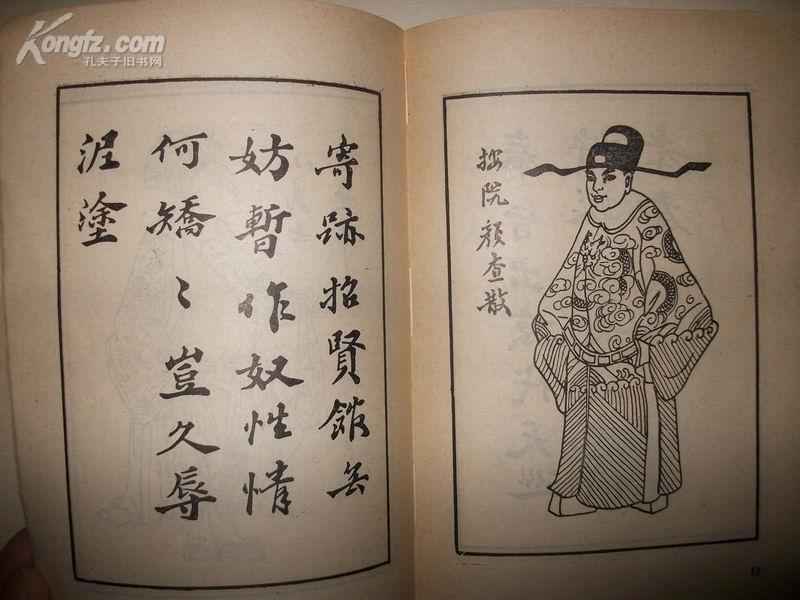 Kongfz.com
孔夫子旧书网
按院顏查散
寄跡招賢館無
妨暫作奴性情
何矯〻豈久辱
泥塗
11